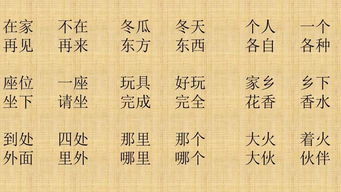 在家 不在 冬瓜 冬天 个人 一个
再见 再来 东方 东西 各自 各种
座位 一座 玩具 好玩 家乡 乡下
坐下 请坐 完成 完全 花香 香水
到处 四处 那里 那个 大火 着火
外面 里外 哪里 哪个 大伙 伙伴